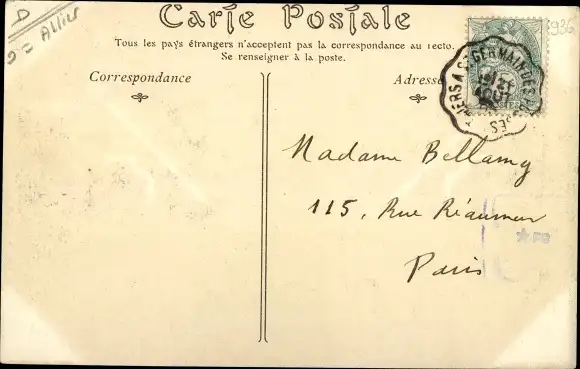 D
Allier
Carte Postale
Tous les pays étrangers n'acceptent pas la correspondance au recto.
Se renseigner à la poste.
Correspondance
Adresse
Madame Bellamy
115, Rue Réaumur
Paris